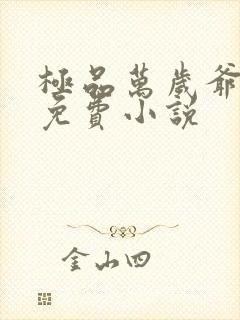 極品萬歲爺
免費小說
金山四